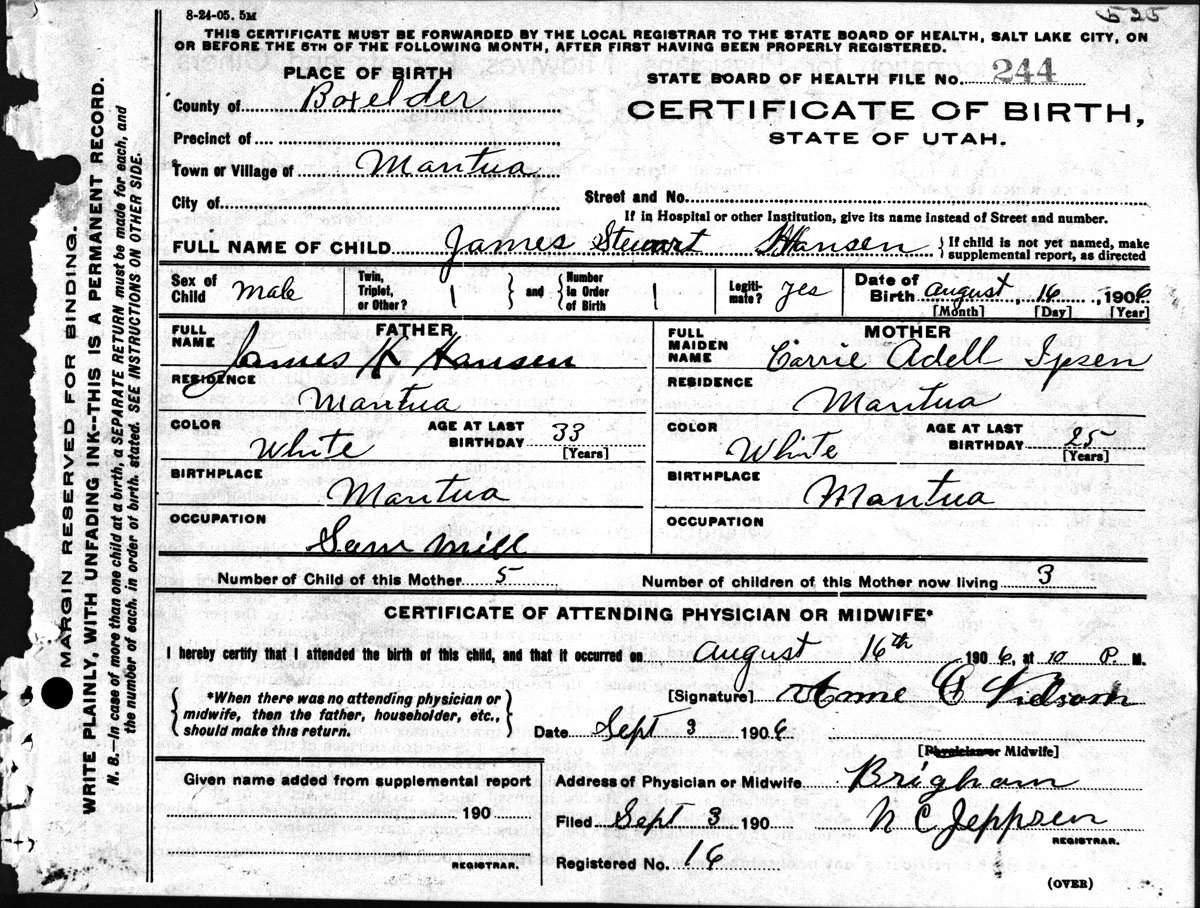 8-24-05. 5M
525
THIS CERTIFICATE MUST BE FORWARDED BY THE LOCAL REGISTRAR TO THE STATE BOARD OF HEALTH, SALT LAKE CITY, ON
OR BEFORE THE 5TH OF THE FOLLOWING MONTH, AFTER FIRST HAVING BEEN PROPERLY REGISTERED.
PLACE OF BIRTH
STATE BOARD OF HEALTH FILE No. 244
County of Boxelder
CERTIFICATE OF BIRTH,
Precinct of
STATE OF UTAH.
Town or Village of Mantua
City of
Street and No.
If in Hospital or other Institution, give its name instead of Street and number.
FULL NAME OF CHILD James Stewart Hansen { If child is not yet named, make
supplemental report, as directed
Sex of Child Male
Twin, Triplet, or Other? 1 } and { Number in Order of Birth 1
Legiti-mate? Yes
Date of Birth August, 16, 1906
[Month] [Day] [Year]
FATHER
FULL NAME James K Hansen
RESIDENCE
Mantua
COLOR White AGE AT LAST BIRTHDAY 33
[Years]
BIRTHPLACE
Mantua
OCCUPATION
Saw Mill
MOTHER
FULL MAIDEN NAME Carrie Adell Ipsen
RESIDENCE
Mantua
COLOR White AGE AT LAST BIRTHDAY 25
[Years]
BIRTHPLACE
Mantua
OCCUPATION
Number of Child of this Mother 5 Number of children of this Mother now living 3
CERTIFICATE OF ATTENDING PHYSICIAN OR MIDWIFE*
I hereby certify that I attended the birth of this child, and that it occurred on August 16th 1906, at 10 P. M.
{ *When there was no attending physician or
midwife, then the father, householder, etc.,
should make this return. }
[Signature] Anne C
Date Sept 3 1906
[Physician or Midwife]
Given name added from supplemental report
190
REGISTRAR.
Address of Physician or Midwife Brigham
Filed Sept 3 190 N C Jeppsen
REGISTRAR.
Registered No. 16
(OVER)
MARGIN RESERVED FOR BINDING.
WRITE PLAINLY, WITH UNFADING INK--THIS IS A PERMANENT RECORD.
N. B.—In case of more than one child at a birth, a SEPARATE RETURN must be made for each, and
the number of each, in order of birth, stated. SEE INSTRUCTIONS ON OTHER SIDE.